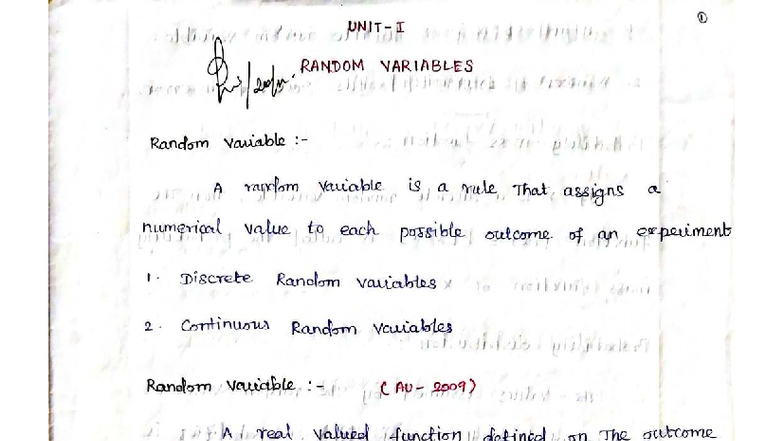 ①
UNIT-I
RANDOM VARIABLES
Random Variable :-
A random variable is a rule That assigns a
numerical value to each possible outcome of an experiment
1. Discrete Random variables
2. Continuous Random Variables
Random Variable :- (AU-2009)
A real valued function defined on The outcome